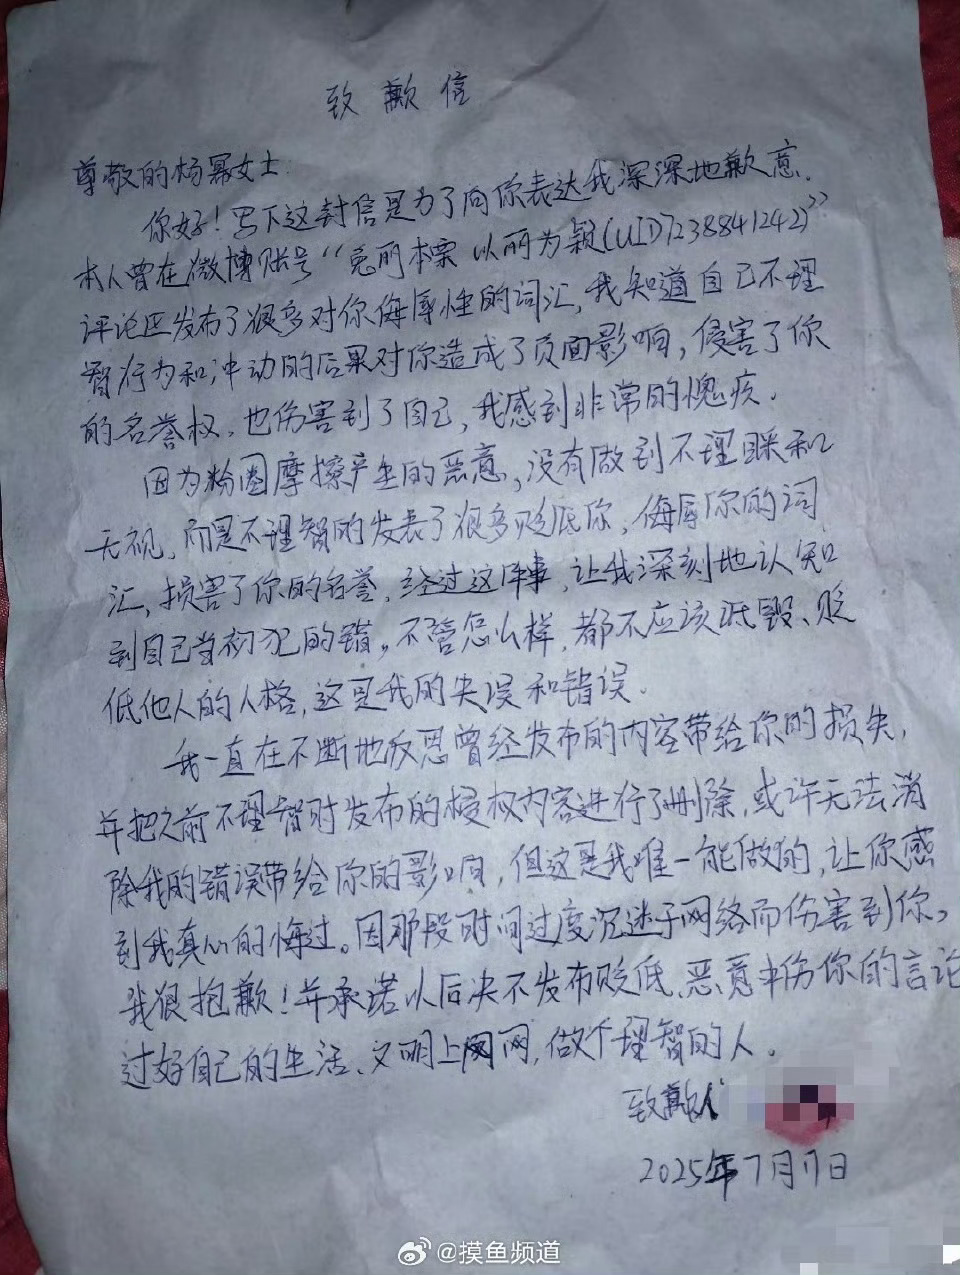 致歉信
尊敬的杨幂女士:
你好!写下这封信是为了向你表达我深深地歉意.
本人曾在微博账号“兔丽本票 以丽为颖(UID7238841242)”
评论区发布了很多对你侮辱性的词汇,我知道自己不理
智行为和冲动的后果对你造成了负面影响,侵害了你
的名誉权,也伤害到了自己,我感到非常的愧疚.
因为粉圈摩擦产生的恶意,没有做到不理睬和
无视,而是不理智的发表了很多贬低你,侮辱你的词
汇,损害了你的名誉,经过这件事,让我深刻地认知
到自己当初犯的错。不管怎么样,都不应该诋毁、贬
低他人的人格,这是我的失误和错误.
我一直在不断地反思曾经发布的内容带给你的损失,
并把之前不理智时发布的侵权内容进行了删除,或许无法消
除我的错误带给你的影响,但这是我唯一能做的,让你感
到我真心的悔过。因那段时间过度沉迷于网络而伤害到你。
我很抱歉!并承诺以后决不发布贬低、恶意中伤你的言论
过好自己的生活、文明上网,做个理智的人。
致歉人
2025年7月17日
@摸鱼频道